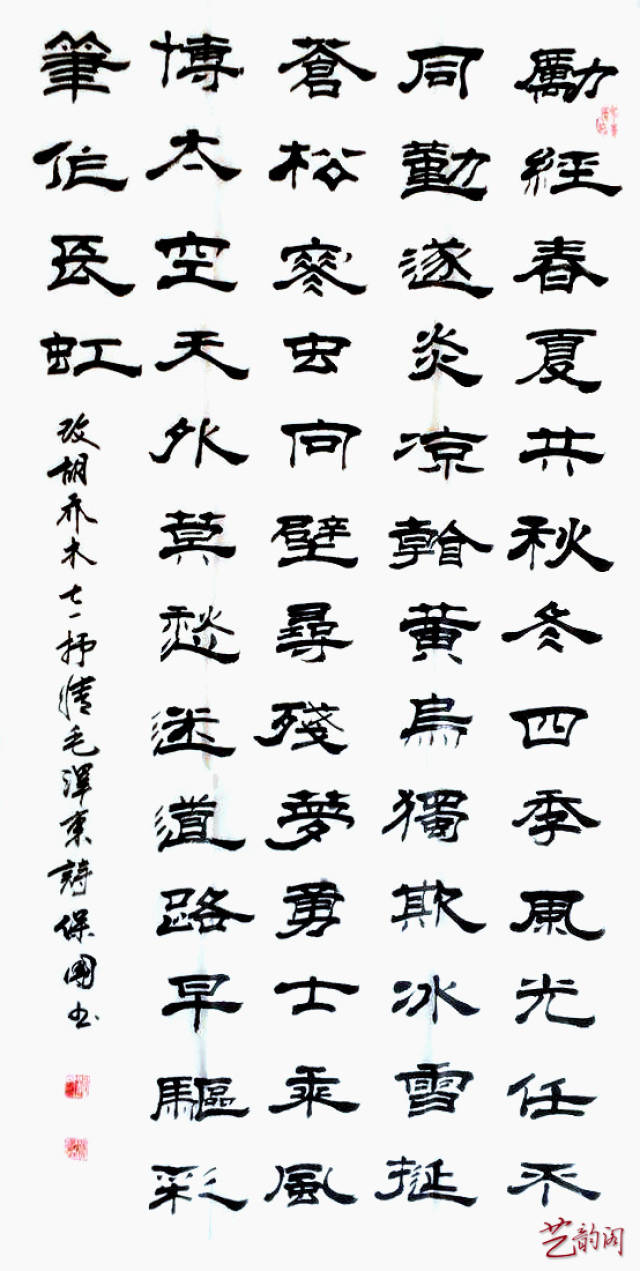 勵經春夏共秋冬四季風光任不
同勤遂炎凉翰黄烏獨欺冰雪挻
蒼松寒虫向壁尋殘夢勇士乘風
博太空天外莫愁迷道路早驅彩
筆作長虹
改胡乔木七一抒情毛澤東詩保國书
艺韵阁